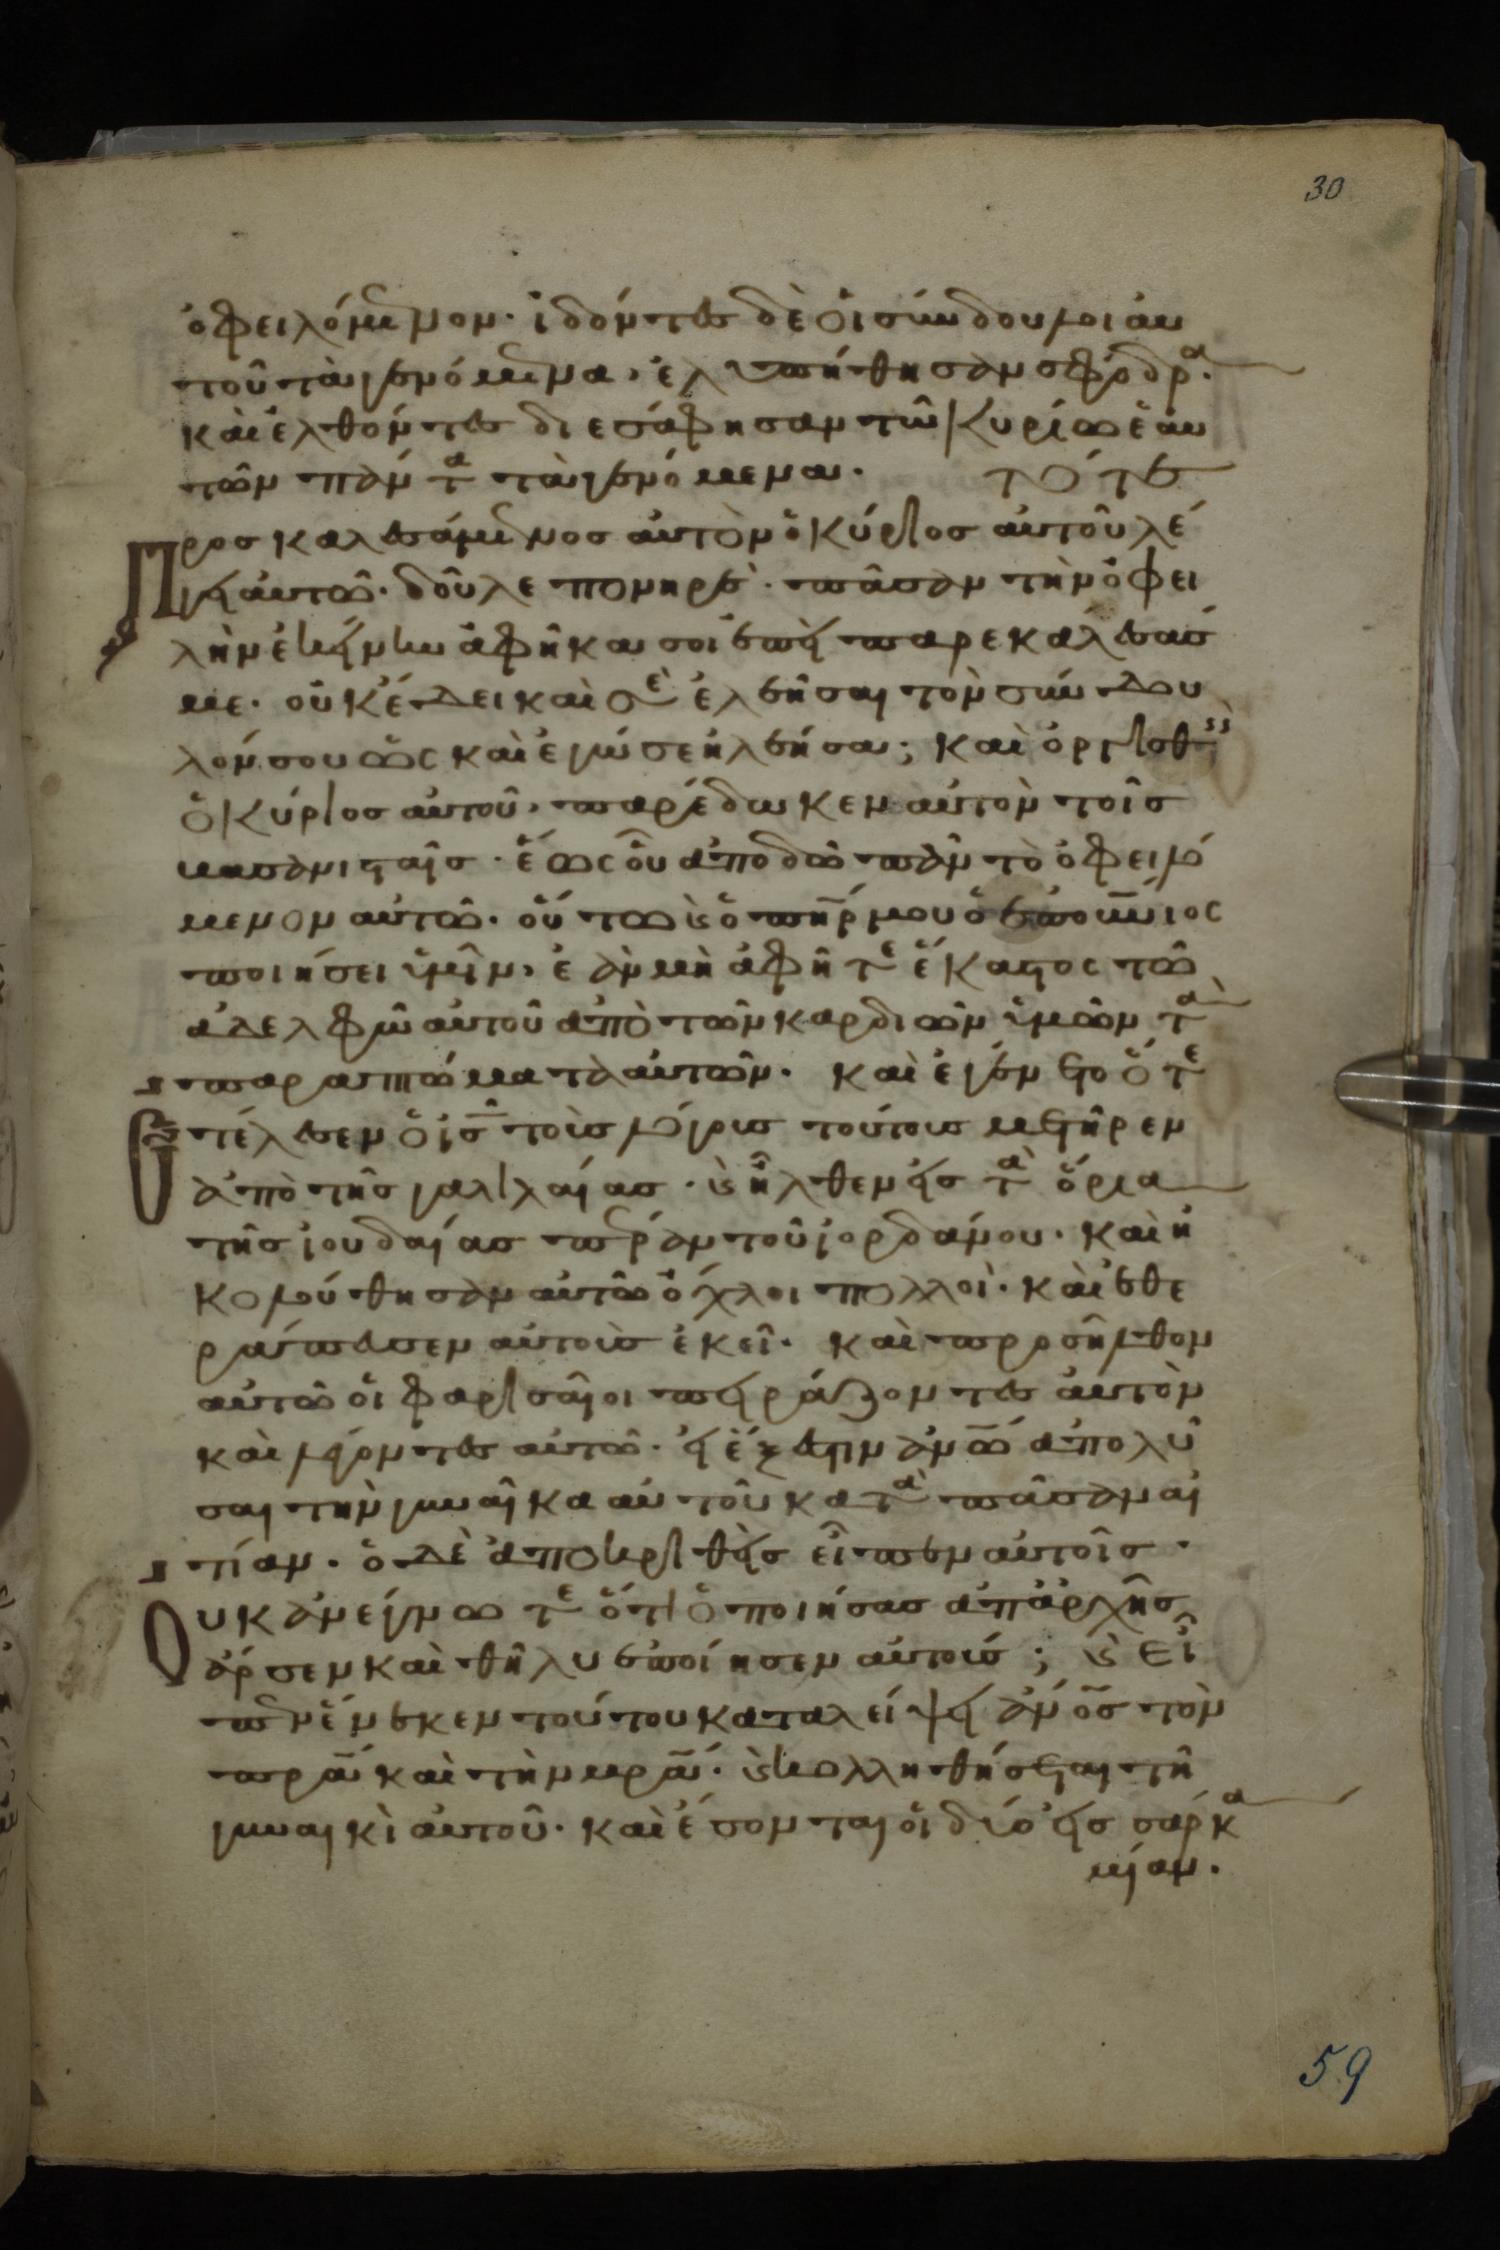 30
ὀφειλόμενον· ἰδόντες δὲ οἱ σύνδουλοι αυ
τοῦ τὰ γενόμενα, ἐλυπήθησαν σφόδρα·
καὶ ἐλθόντες διεσάφησαν τῶ κυρίω ἑαυ
τῶν πάντα τὰ γενόμενα· τότε
Προσκαλεσάμενος αὐτὸν ὁ κύριος αὐτοῦ λέ
γει αυτῶ· δοῦλε πονηρὲ· πᾶσαν τὴν ὀφει
λὴν ἐκείνην ἀφῆκα σοι ἐπεὶ παρεκάλεσάσ
με· οὐκ ἔδει καὶ σὲ ἐλεῆσαι τὸν σύνδου
λόν σου ὡς καὶ ἐγώ σε ἠλέησα; καὶ ὀργισθεὶς
ὁ κύριος αὐτοῦ, παρέδωκεν αὐτὸν τοῖς
βασανισταῖς· ἕως οὗ ἀποδῶ πᾶν τὸ ὀφειλό
μενον αὐτῶ· οὕτω καὶ ὁ πηρ μου ὁ ἐπουνιος
ποιήσει ὑμῖν, ἐὰν μὴ ἀφῆτε ἕκαστος τῶ
ἀδελφῶ αυτοῦ ἀπὸ τῶν καρδιῶν ὑμῶν τὰ
παραπτώματα αυτῶν· καὶ ἐγένετο ὅτε
Ἐτέλεσεν ὁ ις τοὺς λόγους τούτους μετῆρεν
ἀπὸ τῆς γαλιλαίας· καὶ ἦλθεν εἰς τὰ ὅρια
τῆς ἰουδαίας πέραν τοῦ ἰορδάνου· καὶ ἠ
κολούθησαν αυτῶ ὄχλοι πολλοὶ· καὶ ἐθε
ράπευσεν αὐτοὺς ἐκεῖ· καὶ προσῆλθον
αυτῶ οἱ φαρισαῖοι πειράζοντες αὐτὸν
καὶ λέγοντες αυτῶ· εἰ ἔξεστιν ἀνω ἀπολῦ
σαι τὴν γυναῖκα αὐτοῦ κατὰ πᾶσαν αἰ
τίαν· ὁ δὲ ἀποκριθεὶς εἶπεν αυτοῖς·
Οὐκ ἀνέγνωτε ὅτι ὁ ποιήσας ἀπαρχῆς
ἄρσεν καὶ θῆλυ ἐποίησεν αὐτούς; καὶ εἶ
πεν ἕνεκεν τούτου καταλείψει ἀνος τὸν
πρα καὶ τὴν μρα· καὶ κολληθήσεται τῆ
γυναικὶ αὐτοῦ· καὶ ἔσονται οἱ δύο εἰς σάρκα
μίαν·
59